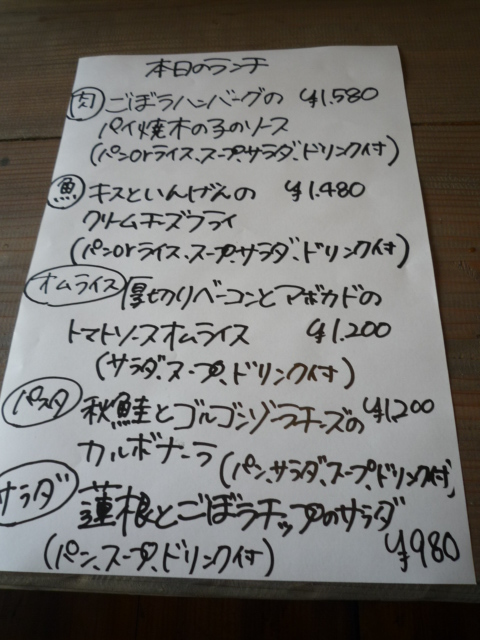 本日のランチ
肉 ごぼうハンバーグの ¥1.580
パイ焼木の子のソース
(パンorライス、スープ、サラダ、ドリンク付)
魚 キスといんげんの ¥1.480
クリームチーズフライ
(パンorライス、スープ、サラダ、ドリンク付)
オムライス 厚切りベーコンとアボカドの
トマトソースオムライス ¥1.200
(サラダ、スープ、ドリンク付)
パスタ 秋鮭とゴルゴンゾーラチーズの ¥1,200
カルボナーラ (パン、サラダ、スープ、ドリンク付)
サラダ 蓮根とごぼうチップのサラダ
(パン、スープ、ドリンク付) ¥980